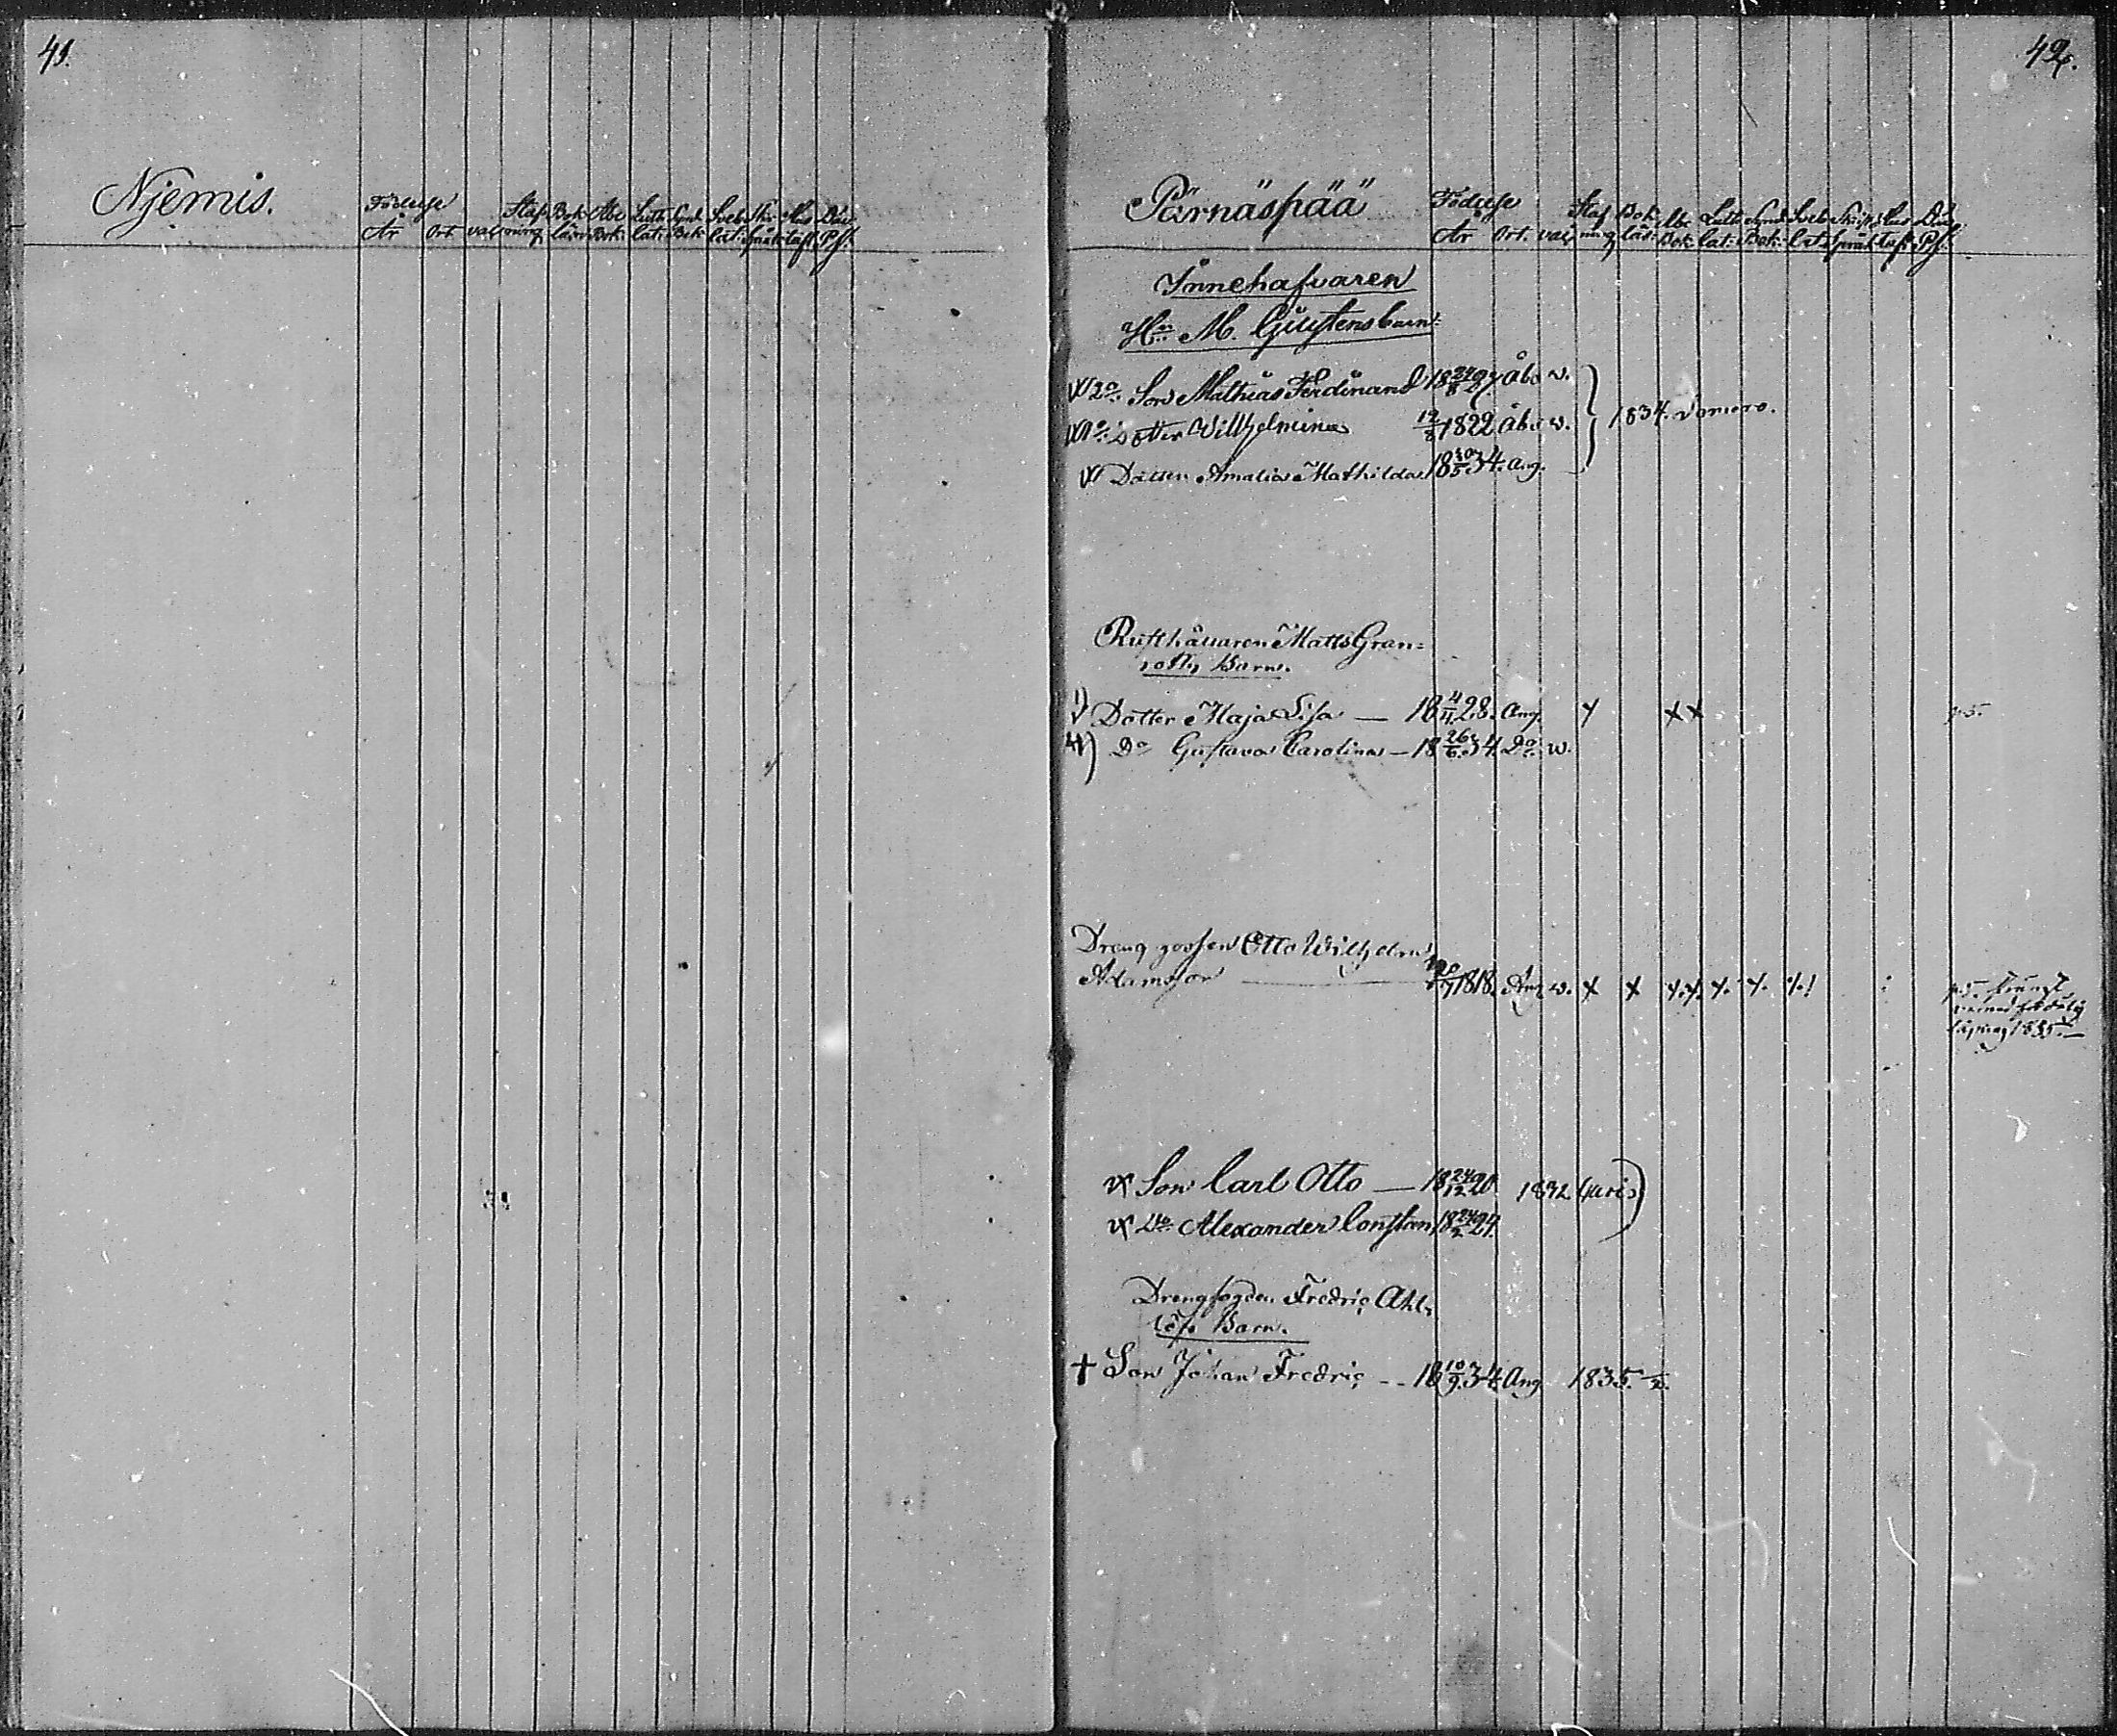 41.
Njemis.
Födelse
År Ort. vac Stafning Bok läsn Abc Bok: Luth. Cat: Synd. Bok Sveb. Cat: Skr: Språk Hus tafl Dav. Ps.
42.
Pärnäspää
Födelse
År Ort. vac Stafning Bok läs: Abc Bok: Luth. Cat: Synd. Bok: Sveb. Cat. Skrift Språk Hus tafl. Dav. Ps.
Innehafvaren
Hr M. Barn:
2o: Son Mathias Ferdinand 18 27. Åbo v.
Dotter Willhelmina 12/8 1822 Åbo v. 1834.
Dotter Amalia Mathilda 18 10/5 34. Ang.
Rusthållaren Matts Gran=
roths Barn.
1) Dotter Maja Lisa — 18 4/11 28. Ang. x xx p.5.
Do Gustava Carolina — 18 26/6 34. Do. w.
Dreng gossen Otto Wilhelm
Adamsson 1818. Ang. v. x x x.x. x. x.
1835.—
Son Carl Otto — 18 24/12 20. 1832
Do Alexander Constan 18 24/2 24.
Drengfogden Fredric Ahl=
Barn.
† Son Johan Fredric — 18 10/9 34 Ang 1835.